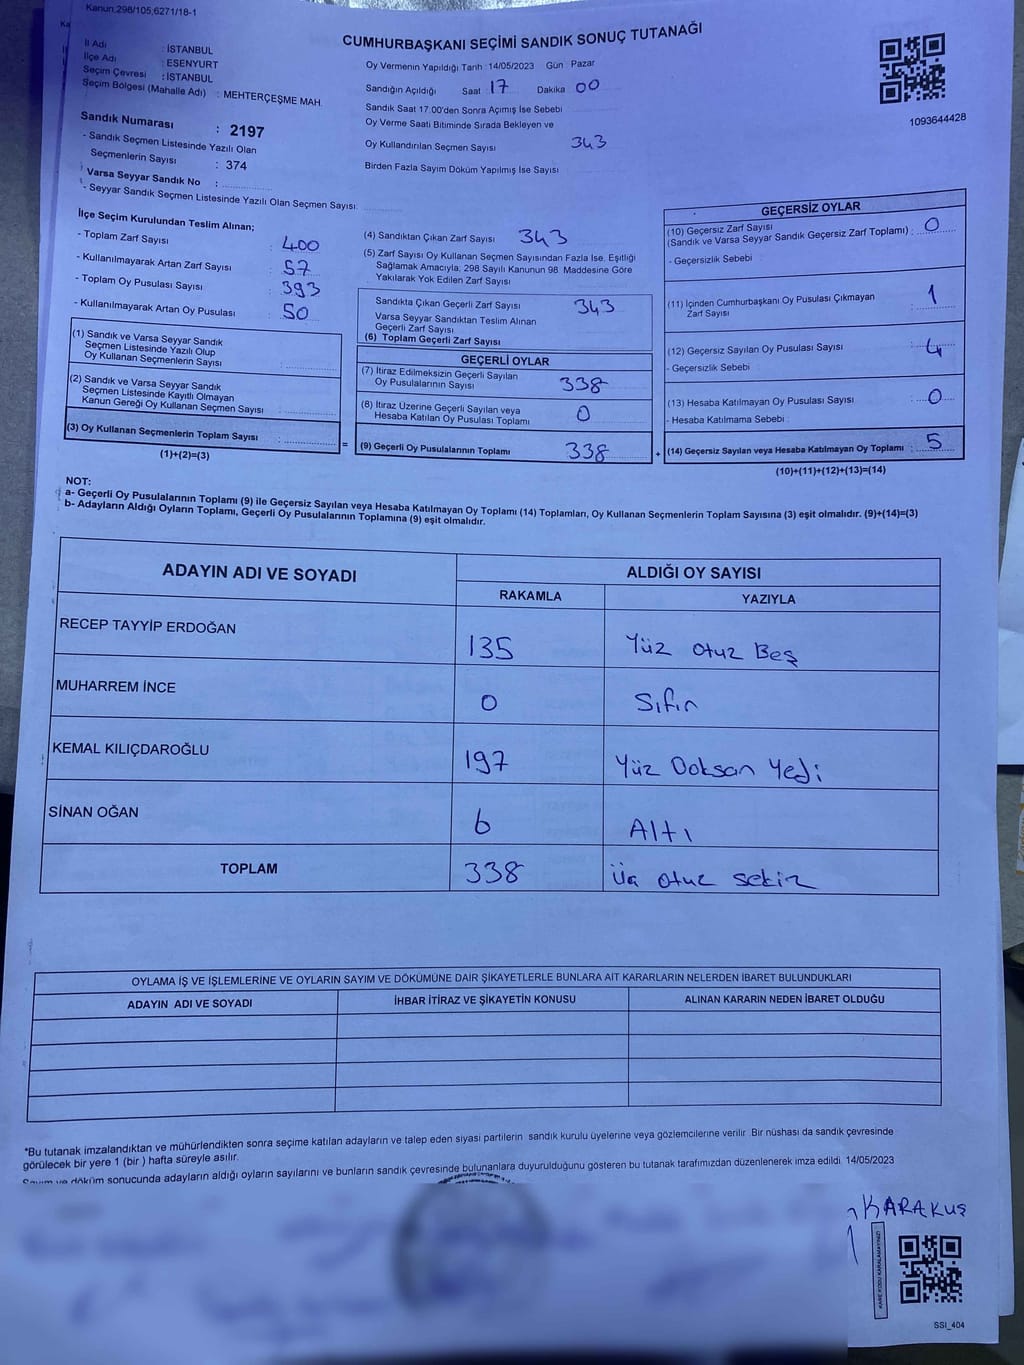 Kanun.298/105,6271/18-1
CUMHURBAŞKANI SEÇİMİ SANDIK SONUÇ TUTANAĞI
İl Adı : İSTANBUL
İlçe Adı : ESENYURT
Seçim Çevresi : İSTANBUL
Seçim Bölgesi (Mahalle Adı) : MEHTERÇEŞME MAH.
Sandık Numarası : 2197
- Sandık Seçmen Listesinde Yazılı Olan
Seçmenlerin Sayısı : 374
Varsa Seyyar Sandık No :
- Seyyar Sandık Seçmen Listesinde Yazılı Olan Seçmen Sayısı:
Oy Vermenin Yapıldığı Tarih :14/05/2023 Gün Pazar
Sandığın Açıldığı Saat : 17 Dakika 00
Sandık Saat 17:00'den Sonra Açımış İse Sebebi
Oy Verme Saati Bitiminde Sırada Bekleyen ve
Oy Kullandırılan Seçmen Sayısı 343
Birden Fazla Sayım Döküm Yapılmış İse Sayısı
1093644428
İlçe Seçim Kurulundan Teslim Alınan;
- Toplam Zarf Sayısı : 400
- Kullanılmayarak Artan Zarf Sayısı : 57
- Toplam Oy Pusulası Sayısı : 393
- Kullanılmayarak Artan Oy Pusulası : 50
(1) Sandık ve Varsa Seyyar Sandık
Seçmen Listesinde Yazılı Olup
Oy Kullanan Seçmenlerin Sayısı :
(2) Sandık ve Varsa Seyyar Sandık
Seçmen Listesinde Kayıtlı Olmayan
Kanun Gereği Oy Kullanan Seçmen Sayısı :
(3) Oy Kullanan Seçmenlerin Toplam Sayısı :
(1)+(2)=(3)
(4) Sandıktan Çıkan Zarf Sayısı 343
(5) Zarf Sayısı Oy Kullanan Seçmen Sayısından Fazla İse, Eşitliği
Sağlamak Amacıyla, 298 Sayılı Kanunun 98. Maddesine Göre
Yakılarak Yok Edilen Zarf Sayısı
Sandıkta Çıkan Geçerli Zarf Sayısı 343
Varsa Seyyar Sandıktan Teslim Alınan
Geçerli Zarf Sayısı
(6) Toplam Geçerli Zarf Sayısı
GEÇERLİ OYLAR
(7) İtiraz Edilmeksizin Geçerli Sayılan
Oy Pusulalarının Sayısı 338
(8) İtiraz Üzerine Geçerli Sayılan veya
Hesaba Katılan Oy Pusulası Toplamı 0
= (9) Geçerli Oy Pusulalarının Toplamı 338
GEÇERSİZ OYLAR
(10) Geçersiz Zarf Sayısı
(Sandık ve Varsa Seyyar Sandık Geçersiz Zarf Toplamı) : 0
- Geçersizlik Sebebi :
(11) İçinden Cumhurbaşkanı Oy Pusulası Çıkmayan
Zarf Sayısı : 1
(12) Geçersiz Sayılan Oy Pusulası Sayısı : 4
- Geçersizlik Sebebi :
(13) Hesaba Katılmayan Oy Pusulası Sayısı : 0
- Hesaba Katılmama Sebebi :
+ (14) Geçersiz Sayılan veya Hesaba Katılmayan Oy Toplamı : 5
(10)+(11)+(12)+(13)=(14)
NOT:
a- Geçerli Oy Pusulalarının Toplamı (9) ile Geçersiz Sayılan veya Hesaba Katılmayan Oy Toplamı (14) Toplamları, Oy Kullanan Seçmenlerin Toplam Sayısına (3) eşit olmalıdır. (9)+(14)=(3)
b- Adayların Aldığı Oyların Toplamı, Geçerli Oy Pusulalarının Toplamına (9) eşit olmalıdır.
ADAYIN ADI VE SOYADI ALDIĞI OY SAYISI
RAKAMLA YAZIYLA
RECEP TAYYİP ERDOĞAN 135 Yüz otuz Beş
MUHARREM İNCE 0 Sıfır
KEMAL KILIÇDAROĞLU 197 Yüz Doksan Yedi
SİNAN OĞAN 6 Altı
TOPLAM 338 üç otuz sekiz
OYLAMA İŞ VE İŞLEMLERİNE VE OYLARIN SAYIM VE DÖKÜMÜNE DAİR ŞİKAYETLERLE BUNLARA AİT KARARLARIN NELERDEN İBARET BULUNDUKLARI
ADAYIN ADI VE SOYADI İHBAR İTİRAZ VE ŞİKAYETİN KONUSU ALINAN KARARIN NEDEN İBARET OLDUĞU
*Bu tutanak imzalandıktan ve mühürlendikten sonra seçime katılan adayların ve talep eden siyasi partilerin sandık kurulu üyelerine veya gözlemcilerine verilir. Bir nüshası da sandık çevresinde
görülecek bir yere 1 (bir ) hafta süreyle asılır.
Sayım ve döküm sonucunda adayların aldığı oyların sayılarını ve bunların sandık çevresinde bulunanlara duyurulduğunu gösteren bu tutanak tarafımızdan düzenlenerek imza edildi. 14/05/2023
KARAKUŞ
KARE KODU KARALAMAYINIZ!
SSI_404